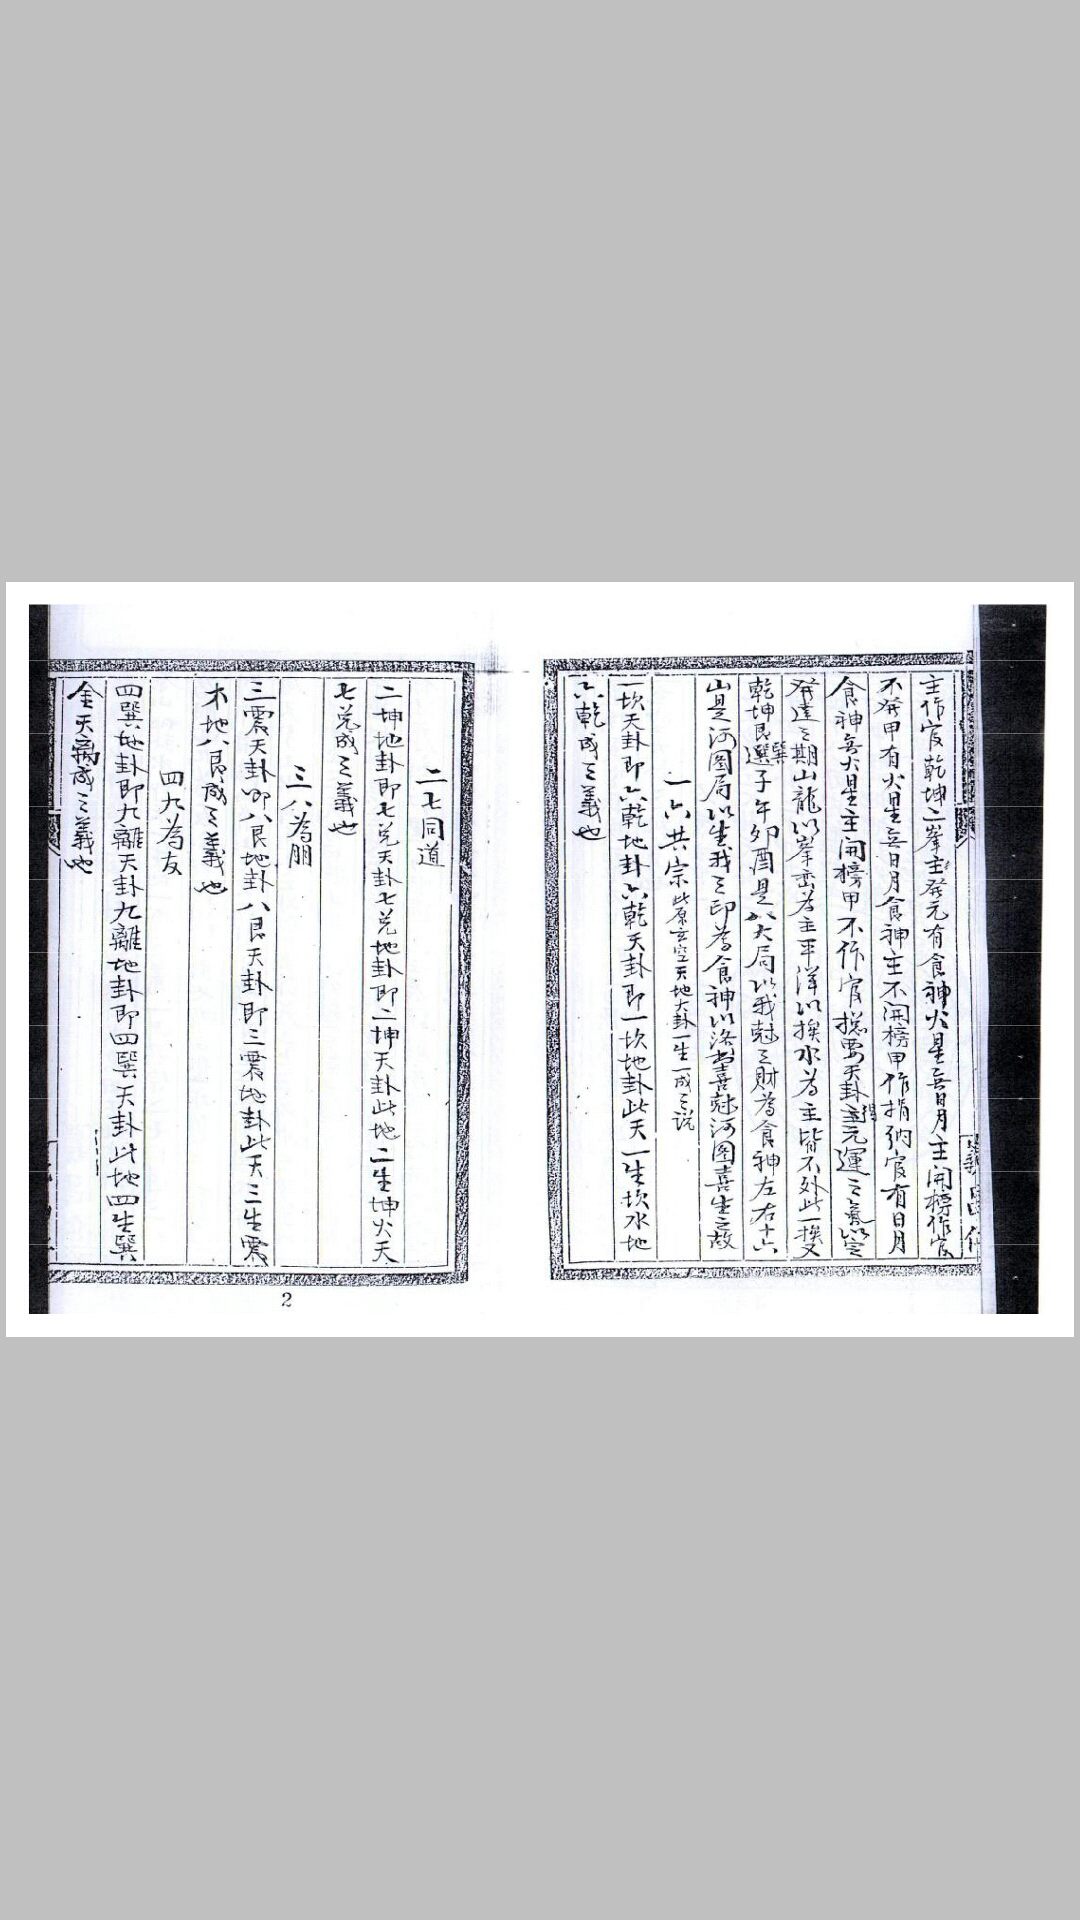 主作官乾坤二峯主發元有食神火星無日月主開榜作官
不發甲有火星無日月食神主不開榜甲作捐納官有日月
食神無火星主開榜甲不作官揔要天卦得元運之氣以定
發達之期山龍以峯巒為主平洋以挨水為主皆不外此一挨又
乾坤艮巽選子午卯酉是八大局以我尅之財為食神左右十六
山是河圖局以生我之印為食神以洛書喜尅河圖喜生之故
一六共宗 此原玄空天地大卦一生一成之說
一坎天卦即六乾地卦六乾天卦即一坎地卦此天一生坎水地
六乾成之義也
二七同道
二坤地卦即七兌天卦七兌地卦即二坤天卦此地二生坤火天
七兌成之義也
三八為朋
三震天卦即八艮地卦八艮天卦即三震地卦此天三生震
木地八艮成之義也
四九為友
四巽地卦即九離天卦九離地卦即四巽天卦此地四生巽
金天離成之義也
2